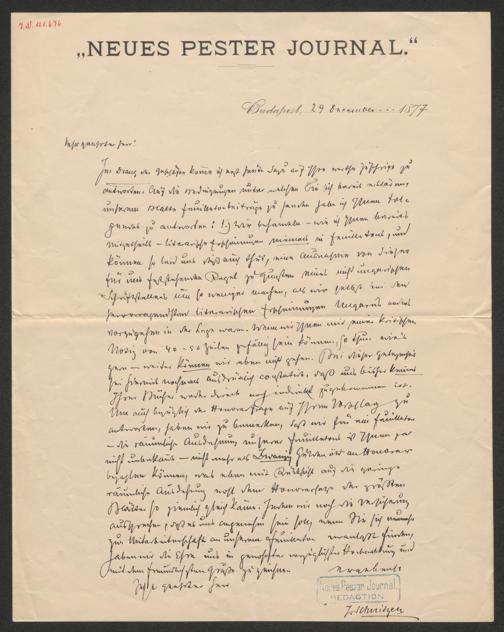 I.N. 121.696
„NEUES PESTER JOURNAL.“
Budapest, 29 December 1877
Sehr geehrter Herr!
Im Drang der Geschäfte komme ich erst heute dazu auf Ihre werthe Zuschrift zu
antworten. Auf die Bedingungen unter welchen Sie sich bereit erklären,
unserem Blatte Feuilletonbeiträge zu senden habe ich Ihnen Fol-
gendes zu antworten: 1.) Wir behandeln – wie ich Ihnen bereits
mitgetheilt – literarische Erscheinungen niemals im Feuilleton, und
können so leid uns dies auch thut, eine Ausnahme von dieser
für uns feststehenden Regel zu Gunsten eines nicht ungarischen
Schriftstellers um so weniger machen, als wir selbst bei den
hervorragendsten literarischen Erscheinungen Ungarns anders
vorzugehen in der Lage waren. Wenn wir Ihnen mit einer kritischen
Notiz von 40–50 Zeilen gefällig sein können, so thun wir es
gern – weiter können wir aber nicht gehen. Bei dieser Gelegenheit
sei hiermit nochmals ausdrücklich constatirt, daß uns bisher keines
Ihrer Bücher weder direct noch indirect zugekommen ist.
Um auch bezüglich der Honorarfrage auf Ihren Vorschlag zu
antworten, haben wir zu bemerken, daß wir für ein Feuilleton
– die räumliche Ausdehnung unserer Feuilletons ist Ihnen ja
nicht unbekannt – nicht mehr als Zwanzig Gulden öW an Honorar
bezahlen können, was eben mit Rücksicht auf die geringe
räumliche Ausdehnung wohl dem Honorarsatze der größten
Blätter so ziemlich gleich käme. Indem wir noch die Versicherung
aussprechen, daß es uns angenehm sein soll, wenn Sie sich
zur Mitarbeiterschaft an unserem Feuilleton veranlaßt finden,
haben wir die Ehre uns in vorzüglicher Hochachtung und
mit dem freundlichsten Gruße zu zeichnen
ergebenst
Sehr geehrter Herr
Neues Pester Journal
REDACTION